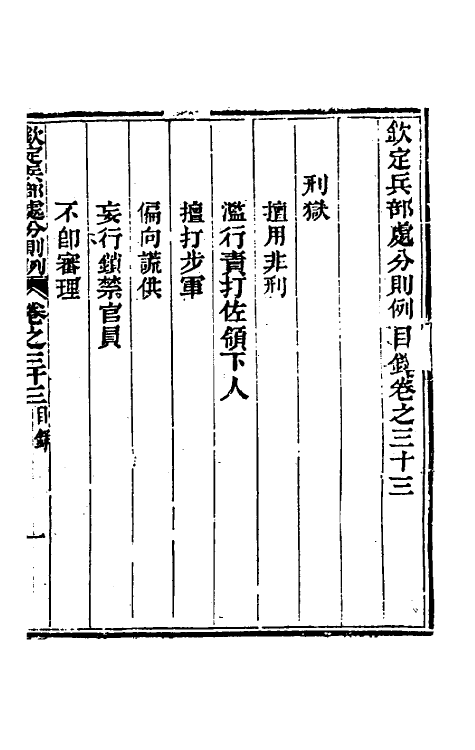 欽定兵部處分則例目錄卷之三十三
刑獄
擅用非刑
濫行責打佐領下人
擅打步軍
偏向謊供
妄行鎖禁官員
不卽審理
欽定兵部處分則例 卷之三十三目錄 一